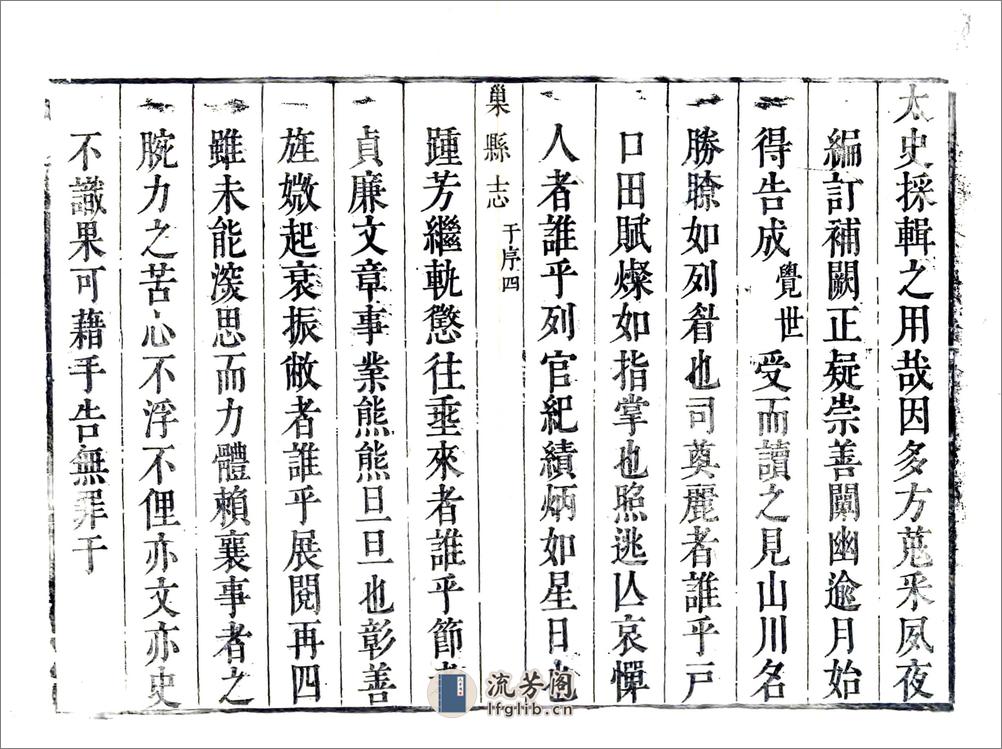 太史採輯之用哉因多方蒐采夙夜
編訂補闕正疑崇善闡幽逾月始
得告成覺世受而讀之見山川名
勝瞭如列眉也司奠麗者誰乎戸
口田賦燦如指掌也照逃亾哀憚
人者誰乎列官紀績炳如星日也
巢縣志
于序四
踵芳繼軌懲往垂來者誰乎節孝
貞廉文章事業熊熊旦旦也彰善
旌媺起衰振敝者誰乎展閱再四
雖未能深思而力體賴襄事者之
腕力之苦心不浮不俚亦文亦史
不識果可藉手告無罪于
流芳阁
lfglib.cn